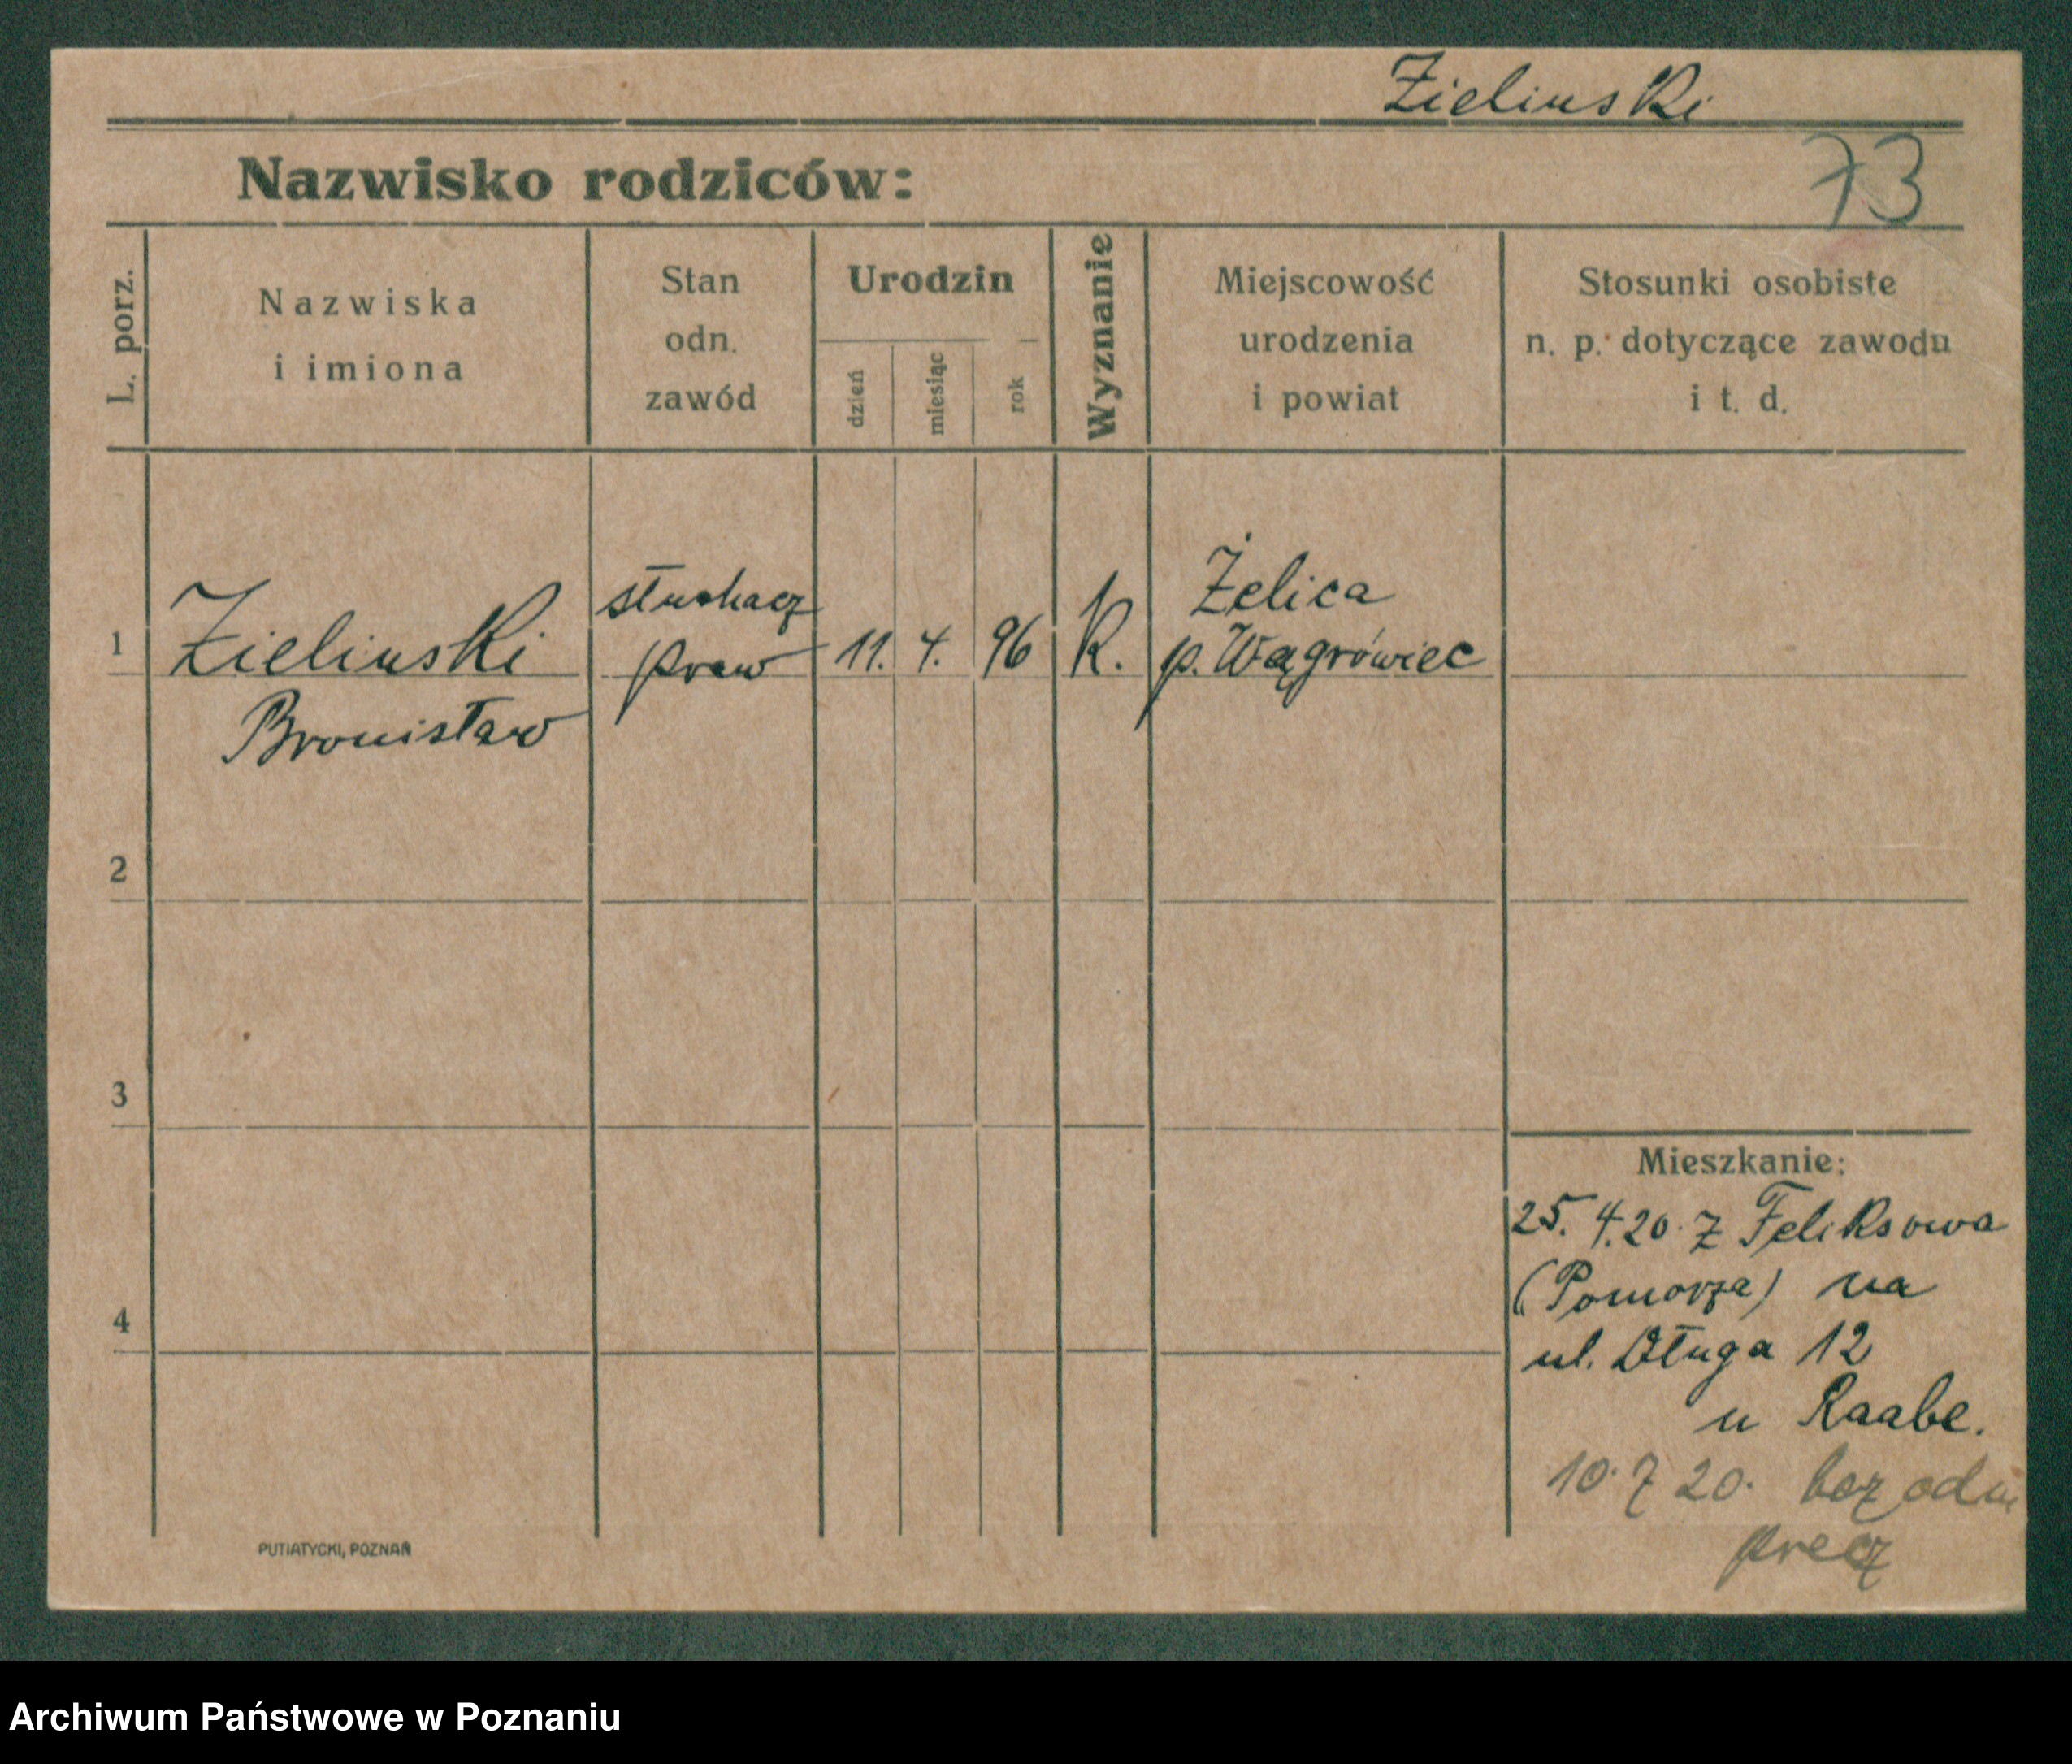 Zielinski
73
Nazwisko rodziców:
L. porz.
Nazwiska
i imiona
Stan
odn.
zawód
Urodzin
dzień
miesiąc
rok
Wyznanie
Miejscowość
urodzenia
i powiat
Stosunki osobiste
n. p. dotyczące zawodu
i t. d.
1
Zielinski
Bronisław
słuchacz
praw
11. 4. 96
K.
Żelica
p. Wągrówiec
2
3
4
Mieszkanie:
25. 4. 20. z Feliksowa
(Pomorza) na
ul. Długa 12
u Raabe.
10. 7 20. bez odm
precz
PUTIATYCKI, POZNAŃ
Archiwum Państwowe w Poznaniu